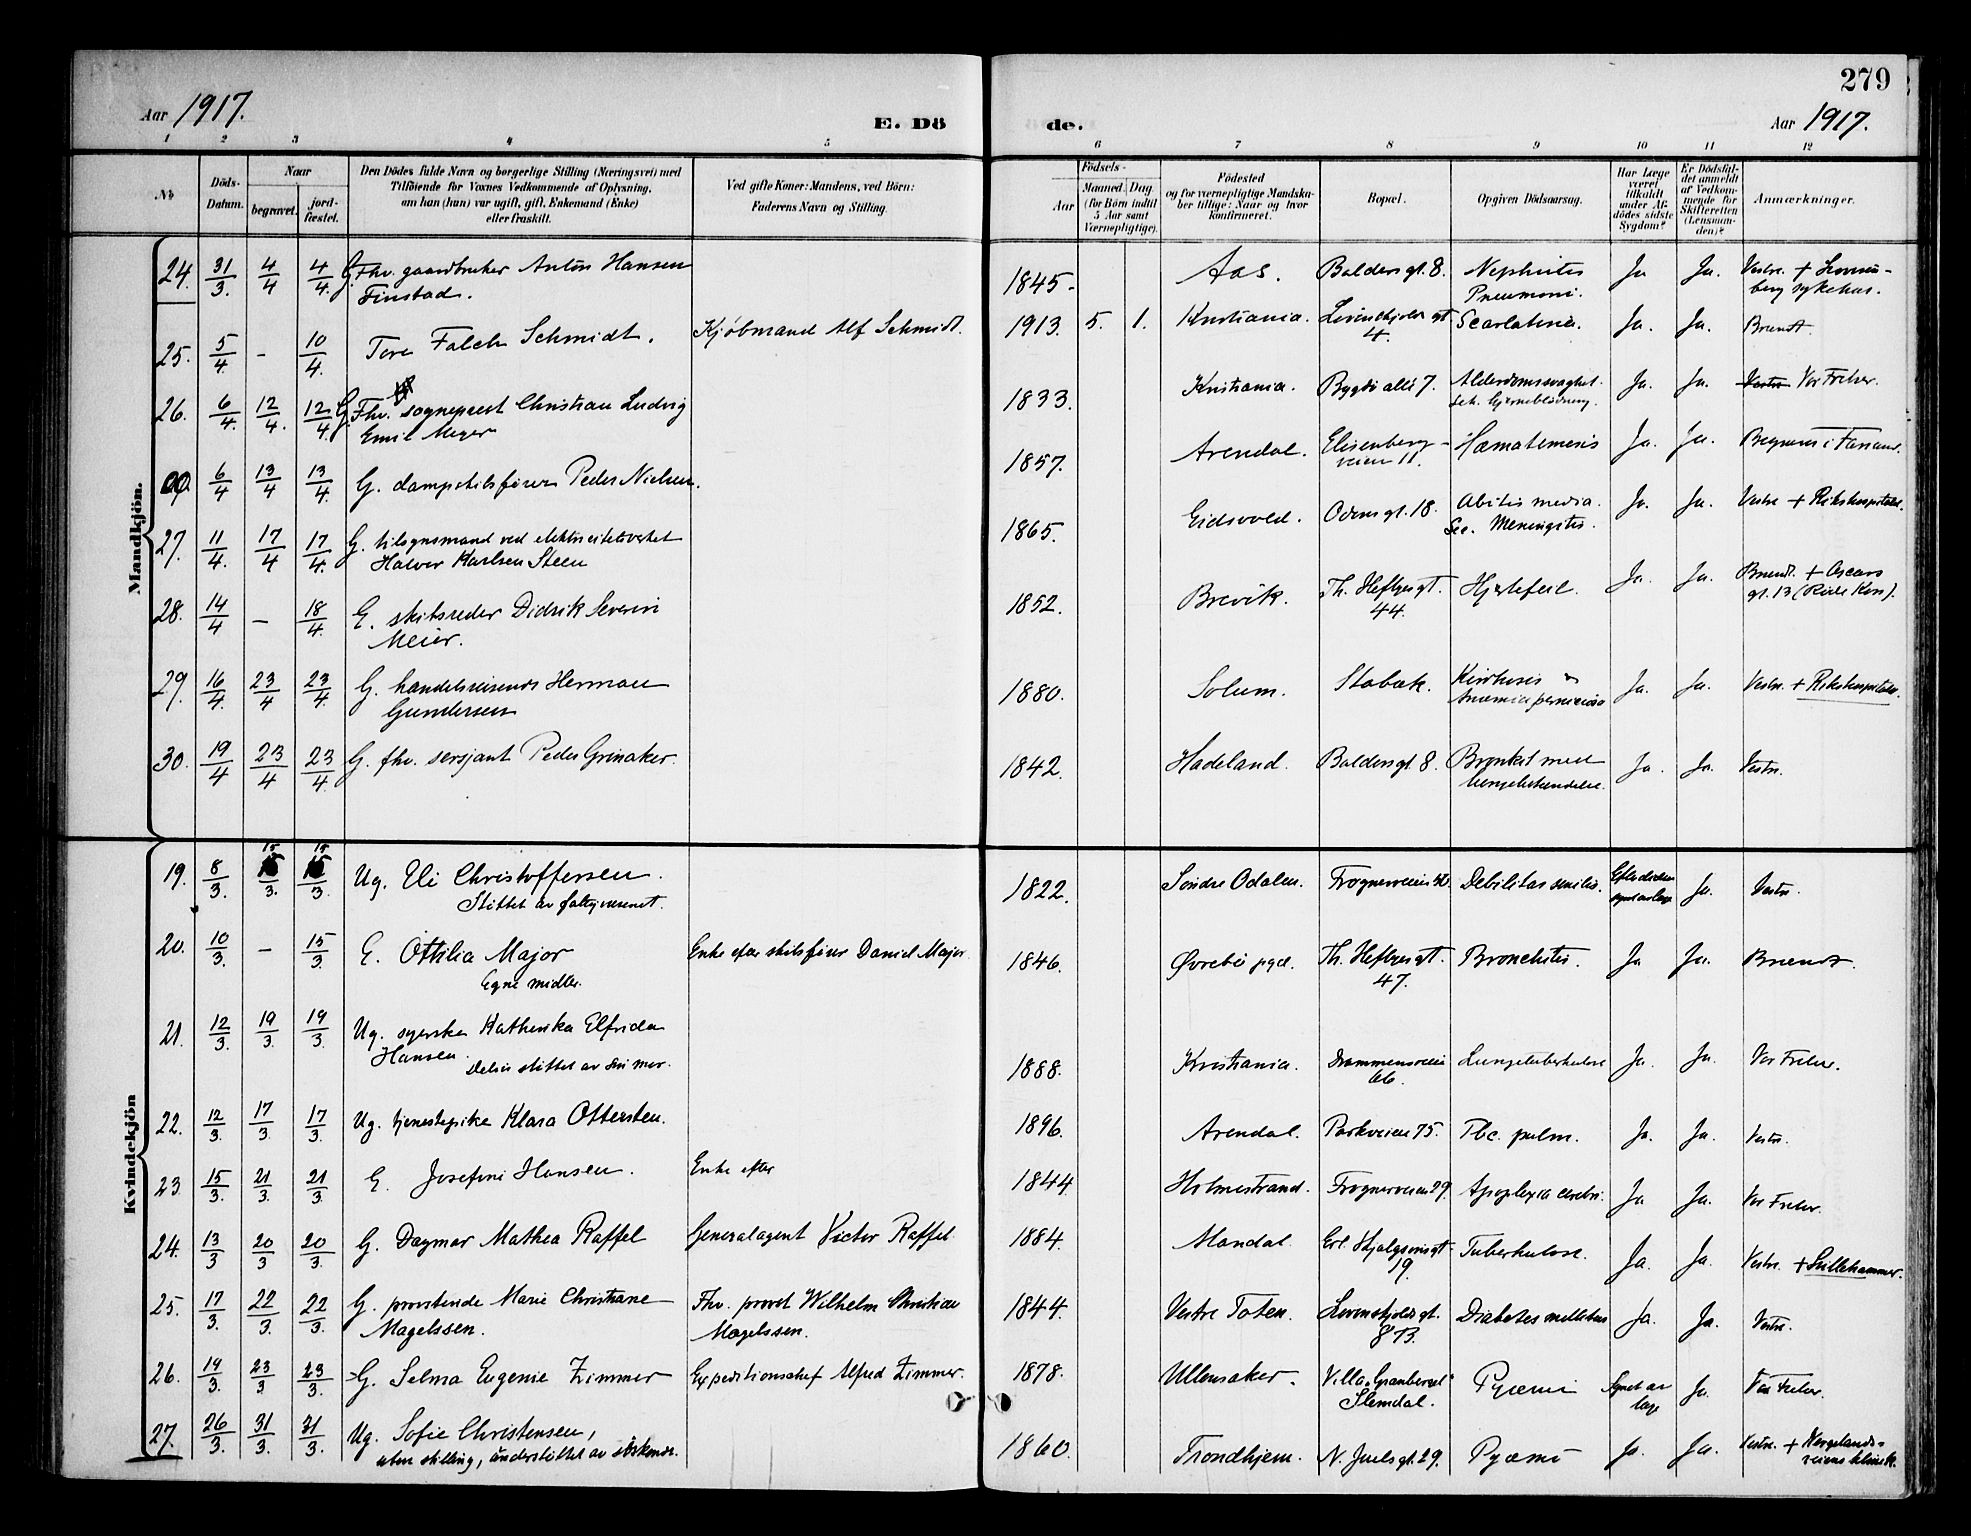 279
Aar 1917.
E. Dö
de.
Aar 1917.
1 2 3 4 5 6 7 8 9 10 11 12
No
Döds-
Datum.
Naar
begravet.
jord-
fæstet.
Den Dödes fulde Navn og borgerlige Stilling (Næringsvei) med
Tilföiende for Voxnes Vedkommende af Oplysning,
om han (hun) var ugift, gift, Enkemand (Enke)
eller fraskilt.
Ved gifte Koner: Mandens, ved Börn:
Faderens Navn og Stilling.
Födsels-
Aar
Maaned. Dag.
(for Börn indtil
5 Aar samt
Værnepligtige).
Födested
og for værnepligtige Mandska-
ber tillige: Naar og hvor
konfirmeret.
Bopæl.
Opgiven Dödsaarsag.
Har Læge
været
tilkaldt
under Af-
dödes sidste
Sygdom?
Er Dödsfal-
det anmeldt
af Vedkom-
mende for
Skifteretten
(Lensman-
den)?
Anmærkninger.
Mandkjön.
24. 31/3. 4/4 4/4. G. Fhv. gaardbruker Anton Hansen 1845. Aas. Baldersgt. 8. Nephritis Ja Ja. Vestre. + Lovisen-
Finstad. Pneumoni. berg sykehus.
25. 5/4 - 10/4. Tore Falch Schmidt. Kjøbmand Alf Schmidt. 1913. 5. 1. Kristiania. Løvenskjolds gt. Scarlatina. Ja. Ja. Brændt.
4.
26. 6/4. 12/4. 12/4. G. Fhv. sogneprest Christian Ludvig 1833. Kristiania. Bygdö allé 7. Alderdomssvaghet. Ja. Ja. Vestre Vor Frelser.
Emil Meyer Hjerneblödning.
6/4 13/4 13/4. G. dampskibsfører Peder Nielsen. 1857. Arendal. Elisenberg- Hæmatemesis Ja. Ja. Begraves i
veien 11.
27. 11/4. 17/4 17/4. G. tilsynsmand ved elektricitetsverket 1865. Eidsvold. Odinsgt. 18. media. Ja. Ja. Vestre + Rikshospitalet.
Halvor Karlsen Steen Sec. Meningitis.
28. 14/4 - 18/4. E. skibsreder Didrik Severin 1852. Brevik. Th. Heftyes gt. Hjertefeil. Ja. Ja. Brændt. + Oscars
Meier. 44. gt. 13 (Røde Kors).
29. 16/4. 23/4 23/4. G. handelsreisende Herman 1880. Solum. Stabæk. Kirrhosis Ja. Ja. Vestre. + Rikshospitalet.
Gundersen Anæmia perniciosa
30. 19/4 23/4 23/4. G. fhv. sersjant Peder Grinaker. 1842. Hadeland. Baldersgt. 8. Bronkit med Ja. Ja. Vestre.
lungebetændelse.
Kvindekjön
19. 8/3. 15/3. 15/3 Ug. Eli Christoffersen. 1822. Söndre Odalen. Frognerveien Debilitas senilis. Ja. Vestre.
Støttet av fattigvæsenet.
20. 10/3. - 15/3. E. Ottilia Major Enke efter skibsfører Daniel Major. 1846. Øvrebö pgd. Th. Heftyes gt. Bronchitis. Ja Ja. Brændt.
Egne midler. 47.
21. 12/3. 19/3. 19/3. Ug. syerske Kathinka Elfrida 1888. Kristiania. Drammensveien Lungetuberkulose Ja. Ja. Vor Frelser.
Hansen. Delvis støttet av sin mor. 66.
22. 12/3. 17/3. 17/3. Ug. tjenestepike Klara Ottersten. 1896. Arendal. Parkveien 75. Tbc. pulm. Ja. Ja. Vestre.
23. 15/3. 21/3. 21/3 E. Josefine Hansen. Enke efter 1844. Holmestrand. Frognerveien 29. Apoplexia cerebri. Ja Ja. Vor Frelser.
24. 13/3 20/3 20/3. G. Dagmar Mathea Raffel Generalagent Victor Raffel. 1884. Mandal. Erl. Skjalgsøns gt. Tuberkulose. Ja. Ja. Vestre. + Lillehammer.
19.
25. 17/3. 22/3. 22/3. G. provstinde Marie Christiane Fhv. provst Wilhelm Christian 1844. Vestre Toten. Løvenskjolds gt. Diabetes mellitus Ja. Ja. Vestre.
Magelssen. Magelssen. 8 B.
26. 19/3. 23/3 23/3. G. Selma Eugenie Zimmer Expeditionschef Alfred Zimmer. 1878. Ullensaker. Villa Pyæmi Synet av Ja. Vor Frelser.
Slemdal. læge
27. 26/3. 31/3. 31/3. Ug. Sofie Christensen, 1860. Trondhjem. N. Juels gt. 29. Pyæmi Ja. Ja. Vestre. + Wergelands-
uten stilling, understöttet av söskende. veiens klinik.